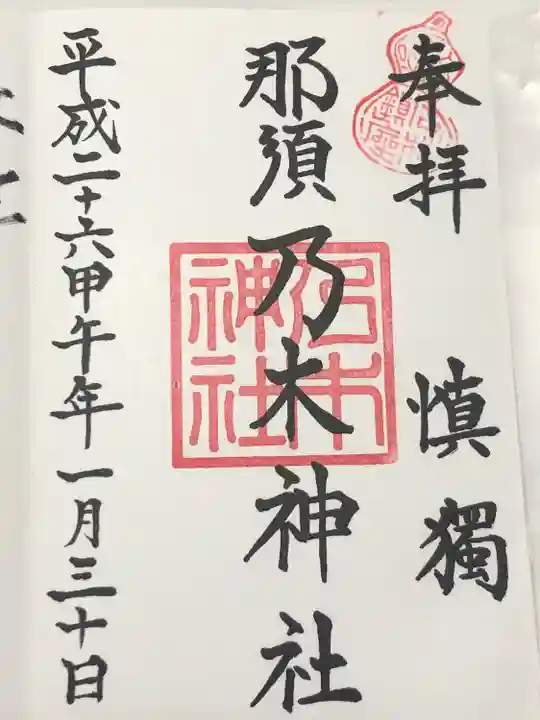 奉拝 慎獨
那須乃木神社
乃木
神社
平成二十六甲午年一月三十日